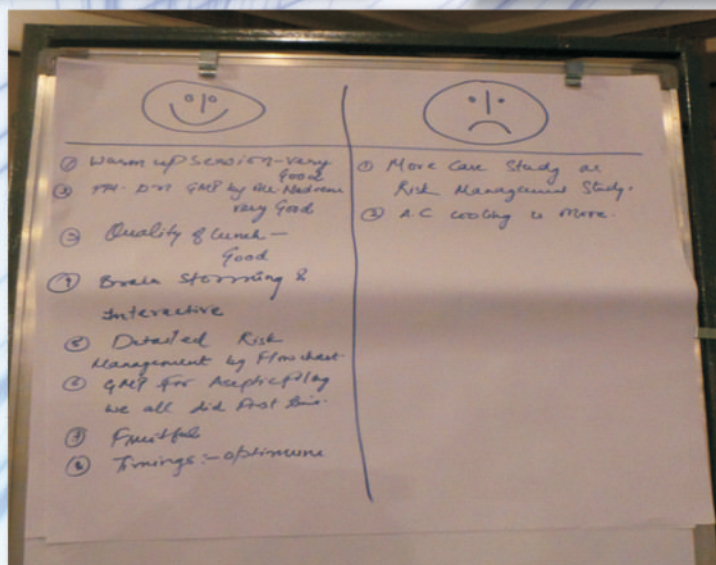 ① Warm up Session - very
Good
② GMP by
very Good
③ Quality of lunch -
Good
④ Brain Storming &
Interactive
⑤ Detailed Risk
Management by Flowchart
⑥ GMP for Aseptic filling
we all did first time.
⑦ Fruitful
⑧ Timings :- optimum
① More Case Study on
Risk Management Study.
② A.C cooling is more.